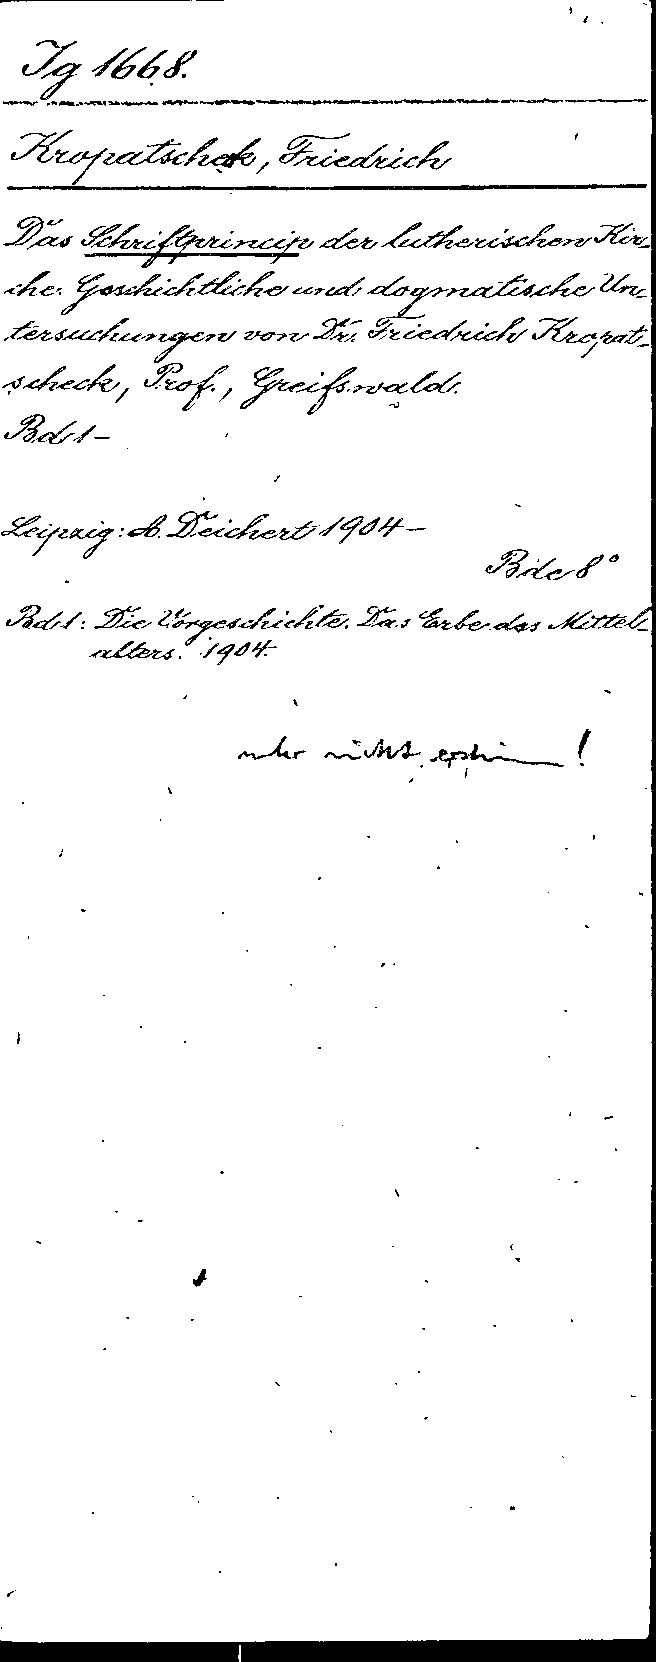 Ig 1668.
Kropatscheck, Friedrich
Das Schriftprincip der lutherischen Kir-
che. Geschichtliche und dogmatische Un-
tersuchungen von Dr. Friedrich Kropat-
scheck, Prof., Greifswald.
Bd 1 –
Leipzig: A. Deichert 1904 –
Bde 8°
Bd 1: Die Vorgeschichte. Das Erbe des Mittel-
alters. 1904.
mehr nicht !